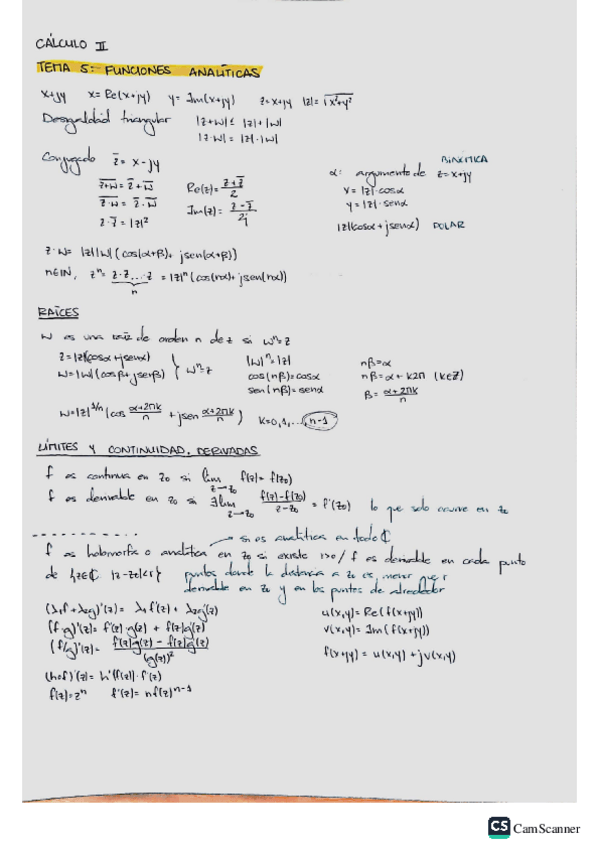 CÁLCULO II
TEMA 5:- FUNCIONES ANALÍTICAS
x+jy   x= Re(x+jy)   y= Im(x+jy)   z=x+jy   |z|=√x²+y²
Desigualdad triangular   |z+w|≤ |z|+|w|
|z·w| = |z|·|w|
Conjugado z̅ = x-jy
z̅+̅w̅ = z̅ + w̅   Re(z)= (z+z̅)/2
z̅·̅w̅ = z̅ · w̅   Im(z)= (z-z̅)/2j
z·z̅ = |z|²
BINÓMICA
α: argumento de z=x+jy
x= |z|·cosα
y= |z|·senα
|z|(cosα+jsenα) POLAR
z·w= |z||w|(cos(α+β)+jsen(α+β))
n∈ℕ, zⁿ= z·z...·z = |z|ⁿ(cos(nα)+jsen(nα))
n
RAÍCES
w es una raíz de orden n de z si wⁿ=z
z=|z|(cosα+jsenα) } wⁿ=z   |w|ⁿ=|z|   nβ=α
w=|w|(cosβ+jsenβ)   cos(nβ)=cosα   nβ=α+k2π (k∈ℤ)
sen(nβ)=senα   β= (α+2πk)/n
w=|z|^1/n (cos (α+2πk)/n + jsen (α+2πk)/n)   k=0,1,...,n-1
LÍMITES Y CONTINUIDAD. DERIVADAS
f es continua en z₀ si lim z→z₀ f(z)= f(z₀)
f es derivable en z₀ si ∃lim z→z₀ (f(z)-f(z₀))/(z-z₀) = f'(z₀)   lo que solo ocurre en z₀
→ si es analítica en todo ℂ
f es holomorfa o analítica en z₀ si existe r>0 / f es derivable en cada punto
de {z∈ℂ |z-z₀|<r}   puntos donde la distancia a z₀ es menor que r
derivable en z₀ y en los puntos de alrededor
(λ₁f+λ₂g)'(z)= λ₁f'(z)+ λ₂g'(z)   u(x,y)= Re(f(x+jy))
(f·g)'(z)= f'(z)·g(z) + f(z)g'(z)   v(x,y)= Im(f(x+jy))
(f/g)'(z)= (f'(z)g(z) - f(z)g'(z))/(g(z))²   f(x+jy)= u(x,y)+jv(x,y)
(h∘f)'(z)= h'(f(z))·f'(z)
f(z)=zⁿ   f'(z)= nf(z)ⁿ⁻¹
CS CamScanner